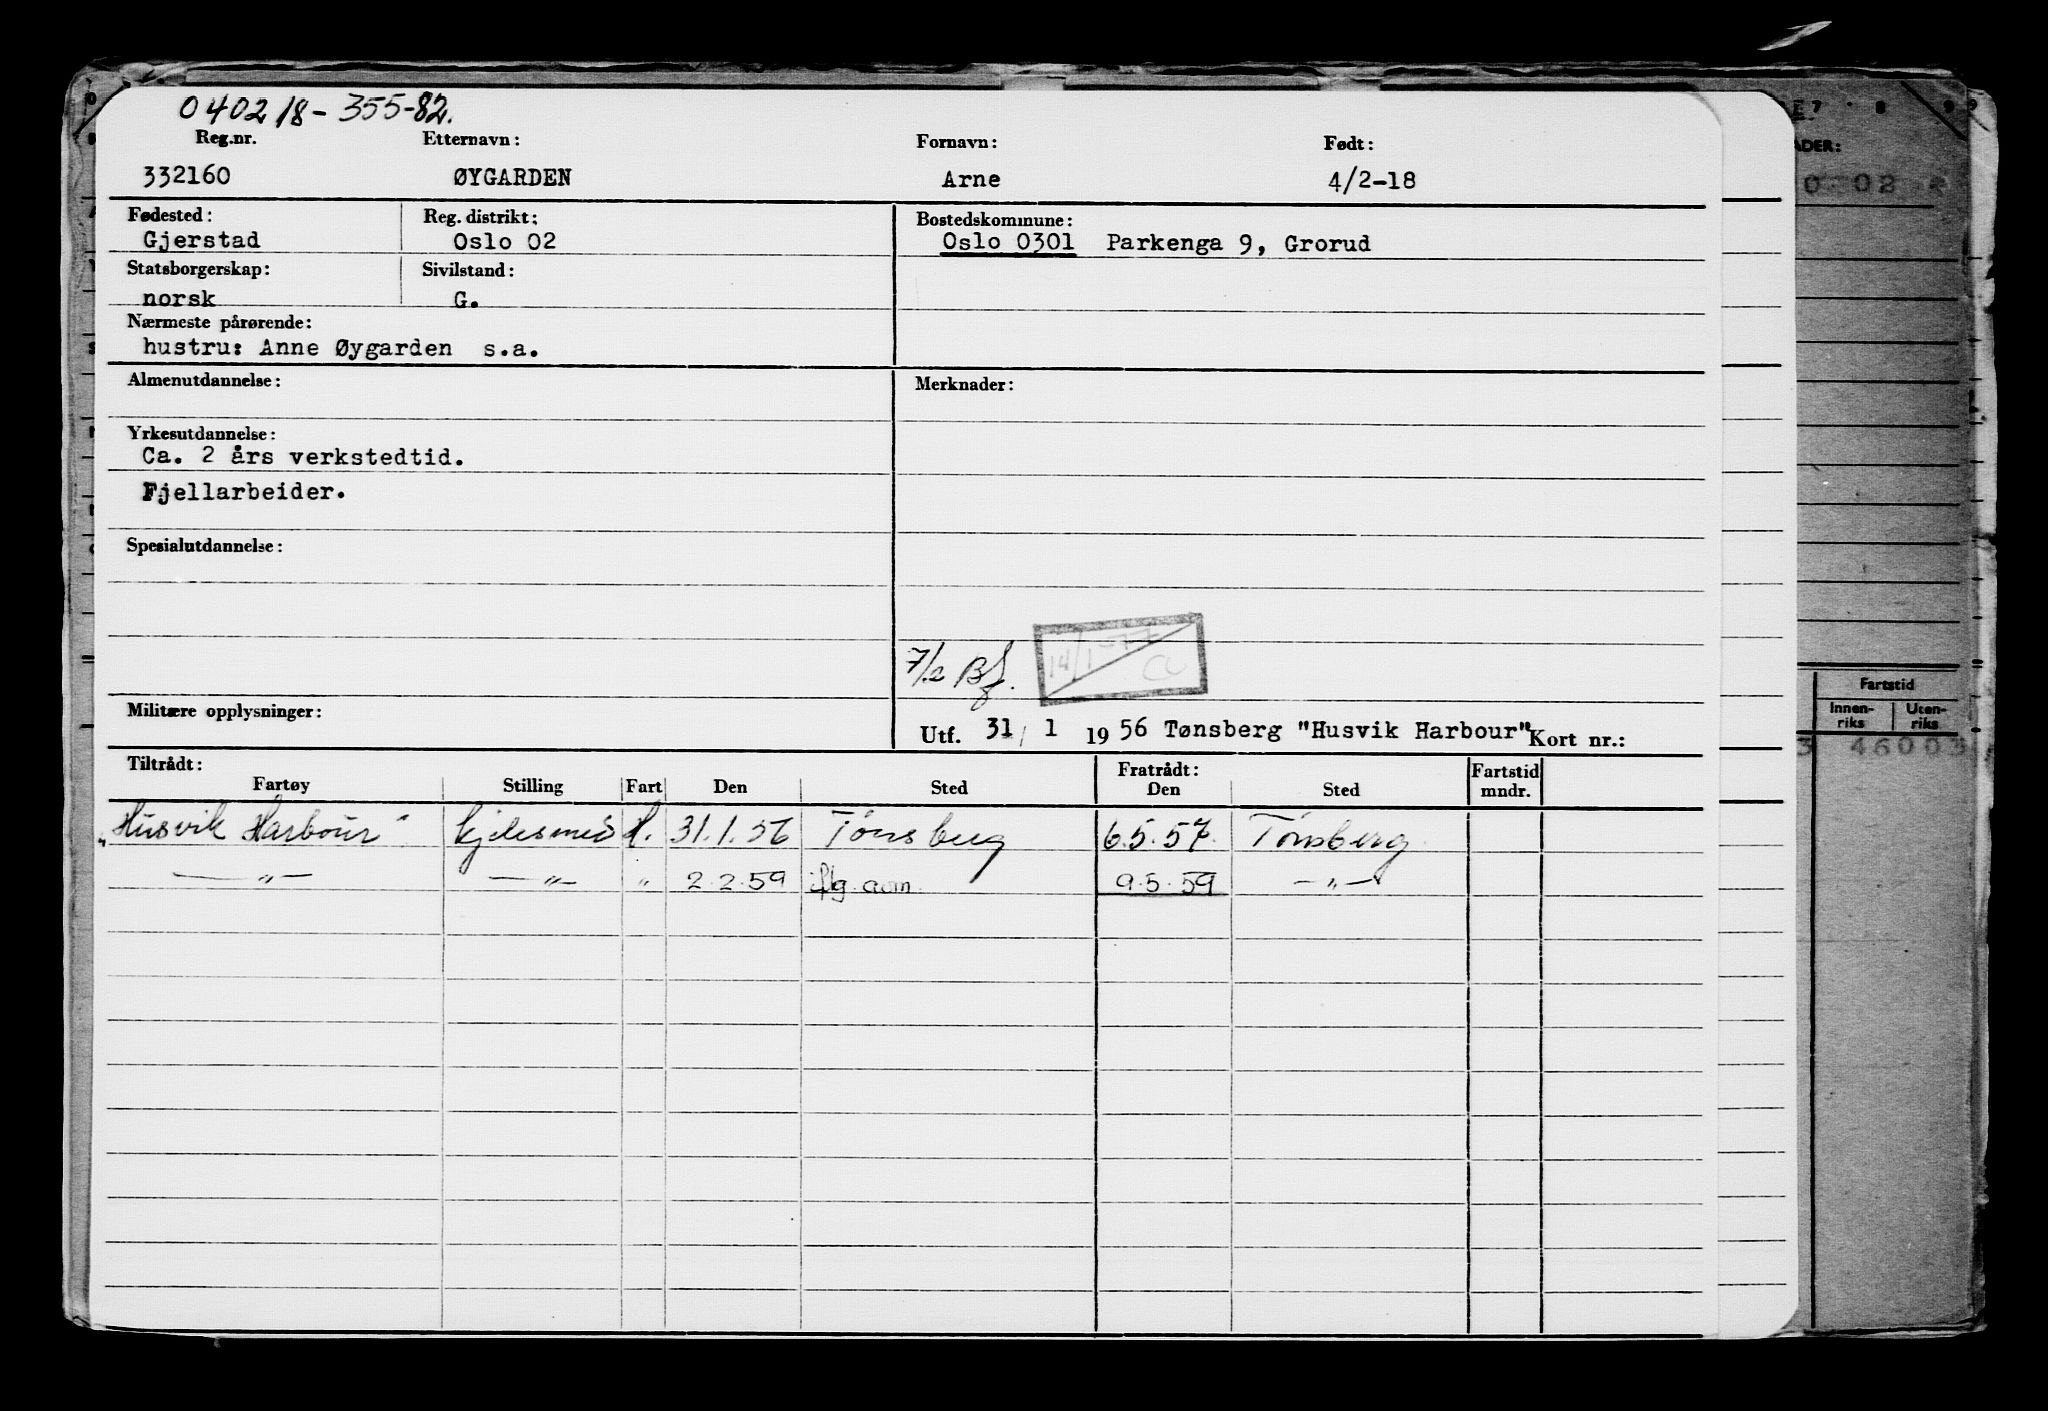 040218-355-82.
Reg.nr. Etternavn: Fornavn: Født:
332160 ØYGARDEN Arne 4/2-18
Fødested: Reg. distrikt: Bostedskommune:
Gjerstad Oslo 02 Oslo 0301 Parkenga 9, Grorud
Statsborgerskap: Sivilstand:
norsk G.
Nærmeste pårørende:
hustru: Anne Øygarden s.a.
Almenutdannelse: Merknader:
Yrkesutdannelse:
Ca. 2 års verkstedtid.
Fjellarbeider.
Spesialutdannelse:
14/1-77
7/2 Bf.
Militære opplysninger:
Utf. 31/1 1956 Tønsberg "Husvik Harbour" Kort nr.:
Tiltrådt: Fratrådt: Fartstid
Fartøy Stilling Fart Den Sted Den Sted mndr.
"Husvik Harbour" kjelesmed H. 31.1.56 Tønsberg 6.5.57. Tønsberg
—"— —"— " 2.2.59 9.5.59 —"—
7 8 9
ADER:
0 02
Fartstid
Innen- Uten-
riks riks
3 46003